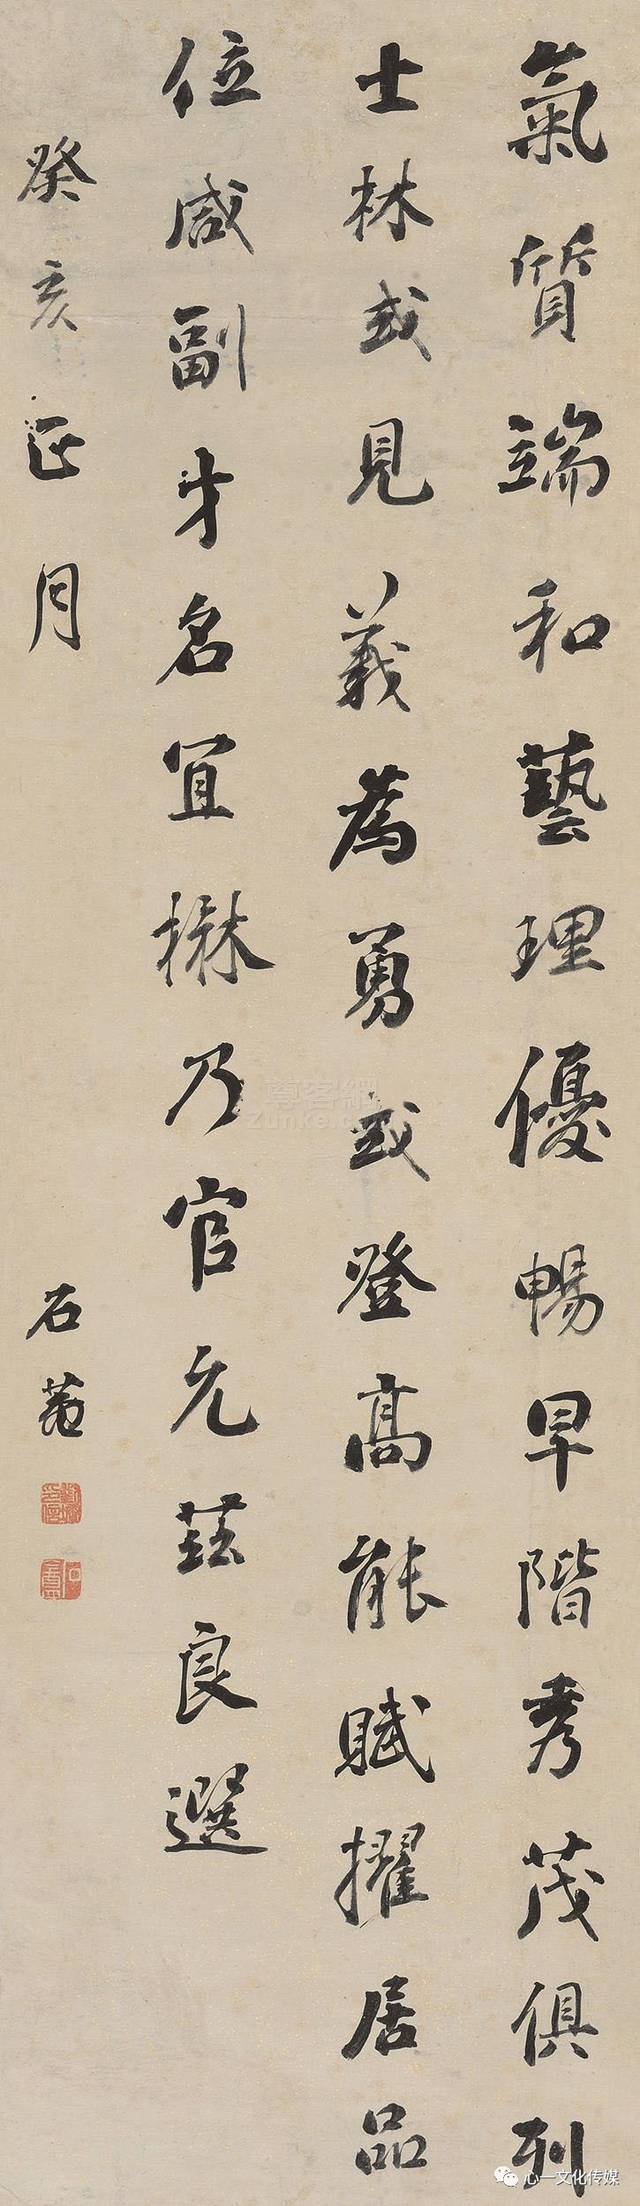 氣質端和藝理優暢早階秀茂俱列
士林或見義為勇或登高能賦擢居品
位咸副才名宜楙乃官允茲良選
癸亥正月
石菴
尊客網
Zunke.com
心一文化传媒